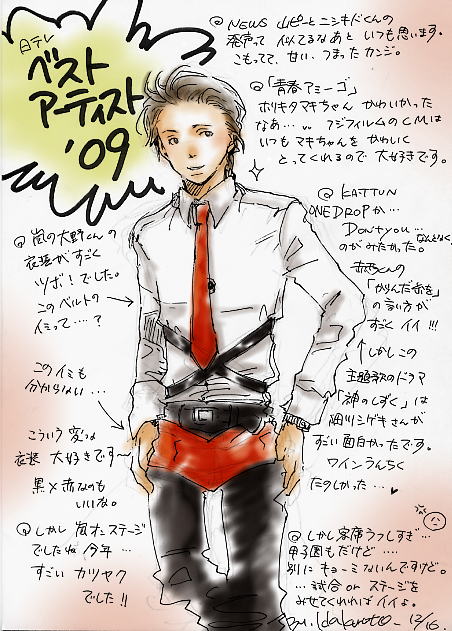 日テレ
ベスト
アーティスト
'09
@NEWS 山ピーとニシキドくんの
発声って 似てるなあと いつも思います。
こもってて、甘い、つまったカンジ。
@「青春アミーゴ」
ホリキタマキちゃん かわいかった
なあ… フジフィルムのCMは
いつも マキちゃんを かわいく
とってくれるので 大好きです。
@KATTUN
ONE DROPか…
Don't you…
のがみたかった。
なんとなく。
赤西くんの
「かりんだ赤を」
の言い方が
すごく イイ!!!
↑しかしこの
主題歌のドラマ
「神のしずく」は
田リシゲキさんが
すごい面白かったです。
ワインうんちく
たのしかった…♥
@嵐の大野くんの
衣装がすごく
ツボ!でした。
このベルトの
イミって…?
このイミも
分からない…
こういう変な
衣装 大好きです〜
黒×赤なのも
いいな。
@しかし 嵐オンステージ
でしたね 今年…
すごい カツヤク
でした!!
@しかし客席うつしすぎ…
甲子園もだけど…
別に キョーミないんですけど。
…試合orステージを
みせてくれれば イイよ。
12/16.